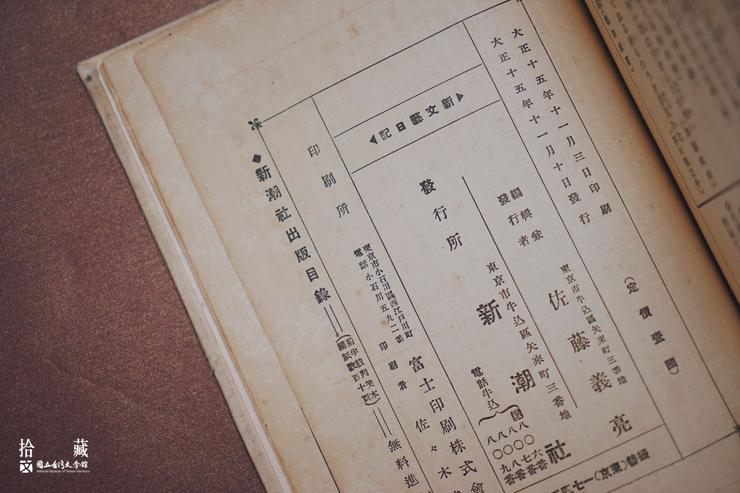 大正十五年十一月三日印刷
大正十五年十一月十日發行
(定價壹圓)
新文藝日記
編輯兼
發行者
東京市牛込區矢來町三番地
佐藤義亮
發行所
東京市牛込區矢來町三番地
新潮社
電話牛込
八〇六番
八〇七番
八〇八番
八〇九番
振替(東京)一七
印刷所
東京市小石川區西江戸川町
電話小石川五九二番
印刷者
富士印刷株式會
佐々木
◆新潮社出版目錄
無料進
拾藏
國立台灣文學館
National Museum of Taiwan Literature